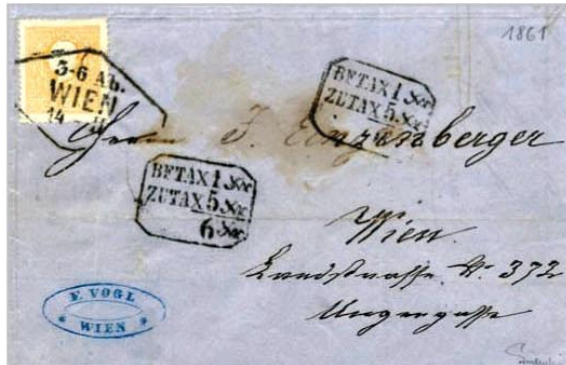 1861
3-6 Ab.
WIEN
14
BETAX 1 Sor.
ZUTAX 5 Sor.
Herrn J. Enzensberger
BETAX 1 Sor.
ZUTAX 5 Sor.
6 Sor.
Wien.
Landstrasse Nr. 372
Ungergasse
E. VOGL
* WIEN *